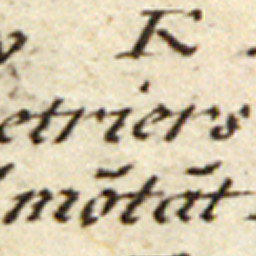 K
etriers
mõtãt